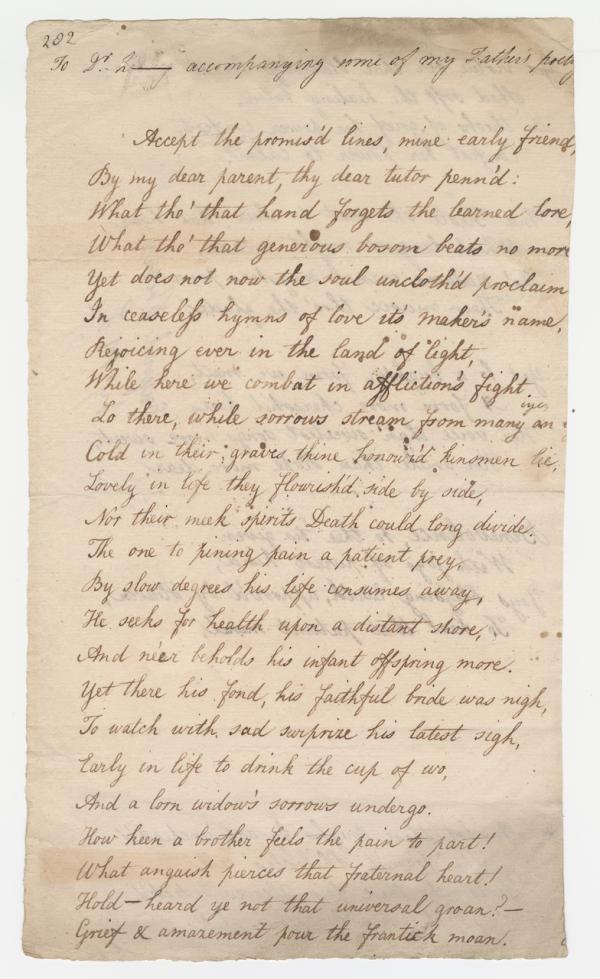 202
To Dr. L—— accompanying some of my Father's poetry
Accept the promis'd lines, mine early friend,
By my dear parent, thy dear tutor penn'd:
What tho' that hand forgets the learned lore,
What tho' that generous bosom beats no more
Yet does not now the soul uncloth'd proclaim
In ceaseless hymns of love it's maker's name,
Rejoicing ever in the land of light,
While here we combat in affliction's fight.
Lo there, while sorrows stream from many an eye
Cold in their graves thine honour'd kinsmen lie,
Lovely in life they flourish'd side by side,
Nor their meek spirits Death could long divide.
The one to pining pain a patient prey,
By slow degrees his life consumes away,
He seeks for health upon a distant shore,
And ne'er beholds his infant offspring more.
Yet there his fond, his faithful bride was nigh,
To watch with sad surprize his latest sigh,
Early in life to drink the cup of wo,
And a lorn widow's sorrows undergo.
How keen a brother feels the pain to part!
What anguish pierces that fraternal heart!
Hold—heard ye not that universal groan?—
Grief & amazement pour the frantick moan.